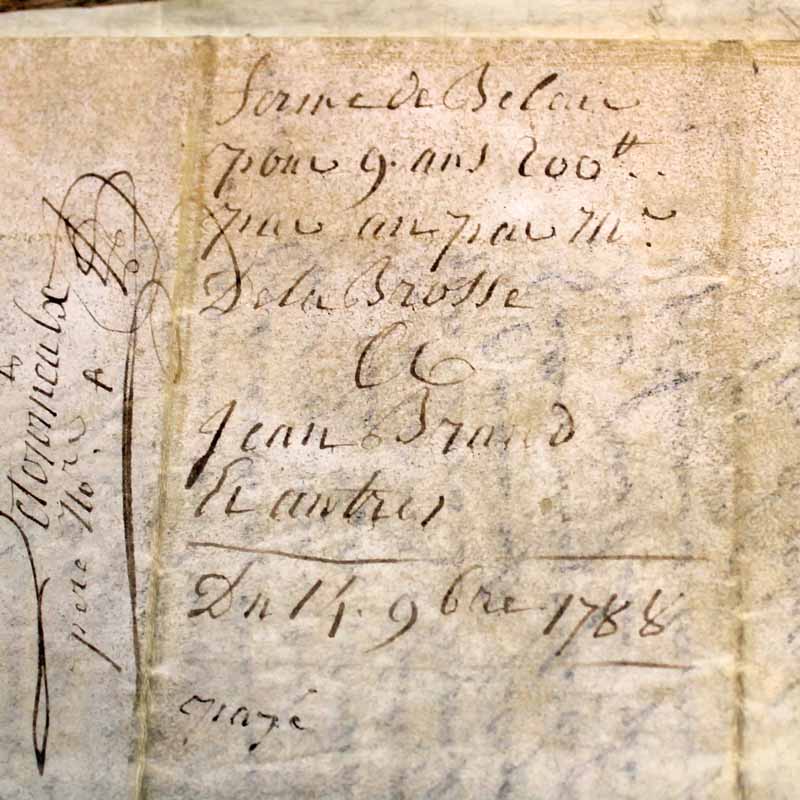 ferme de Belair
pour 9. ans 200tt..
par an par Mr.
De la Brosse
A
Jean Braud
Et autres
Du 14. 9bre 1788
payé
père Nore.